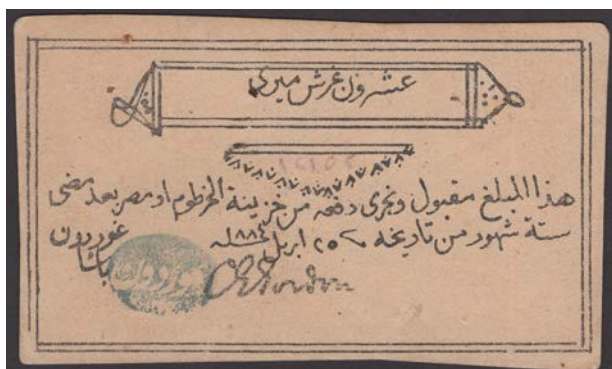 عشرون غرش ميرى
هذا المبلغ مقبول ويجرى دفعه من خزينة الخرطوم او مصر بعد مضى
ستة شهور من تاريخه ٢٥ ابريل سنة ١٨٨٤ غوردون
باشا
Gordon